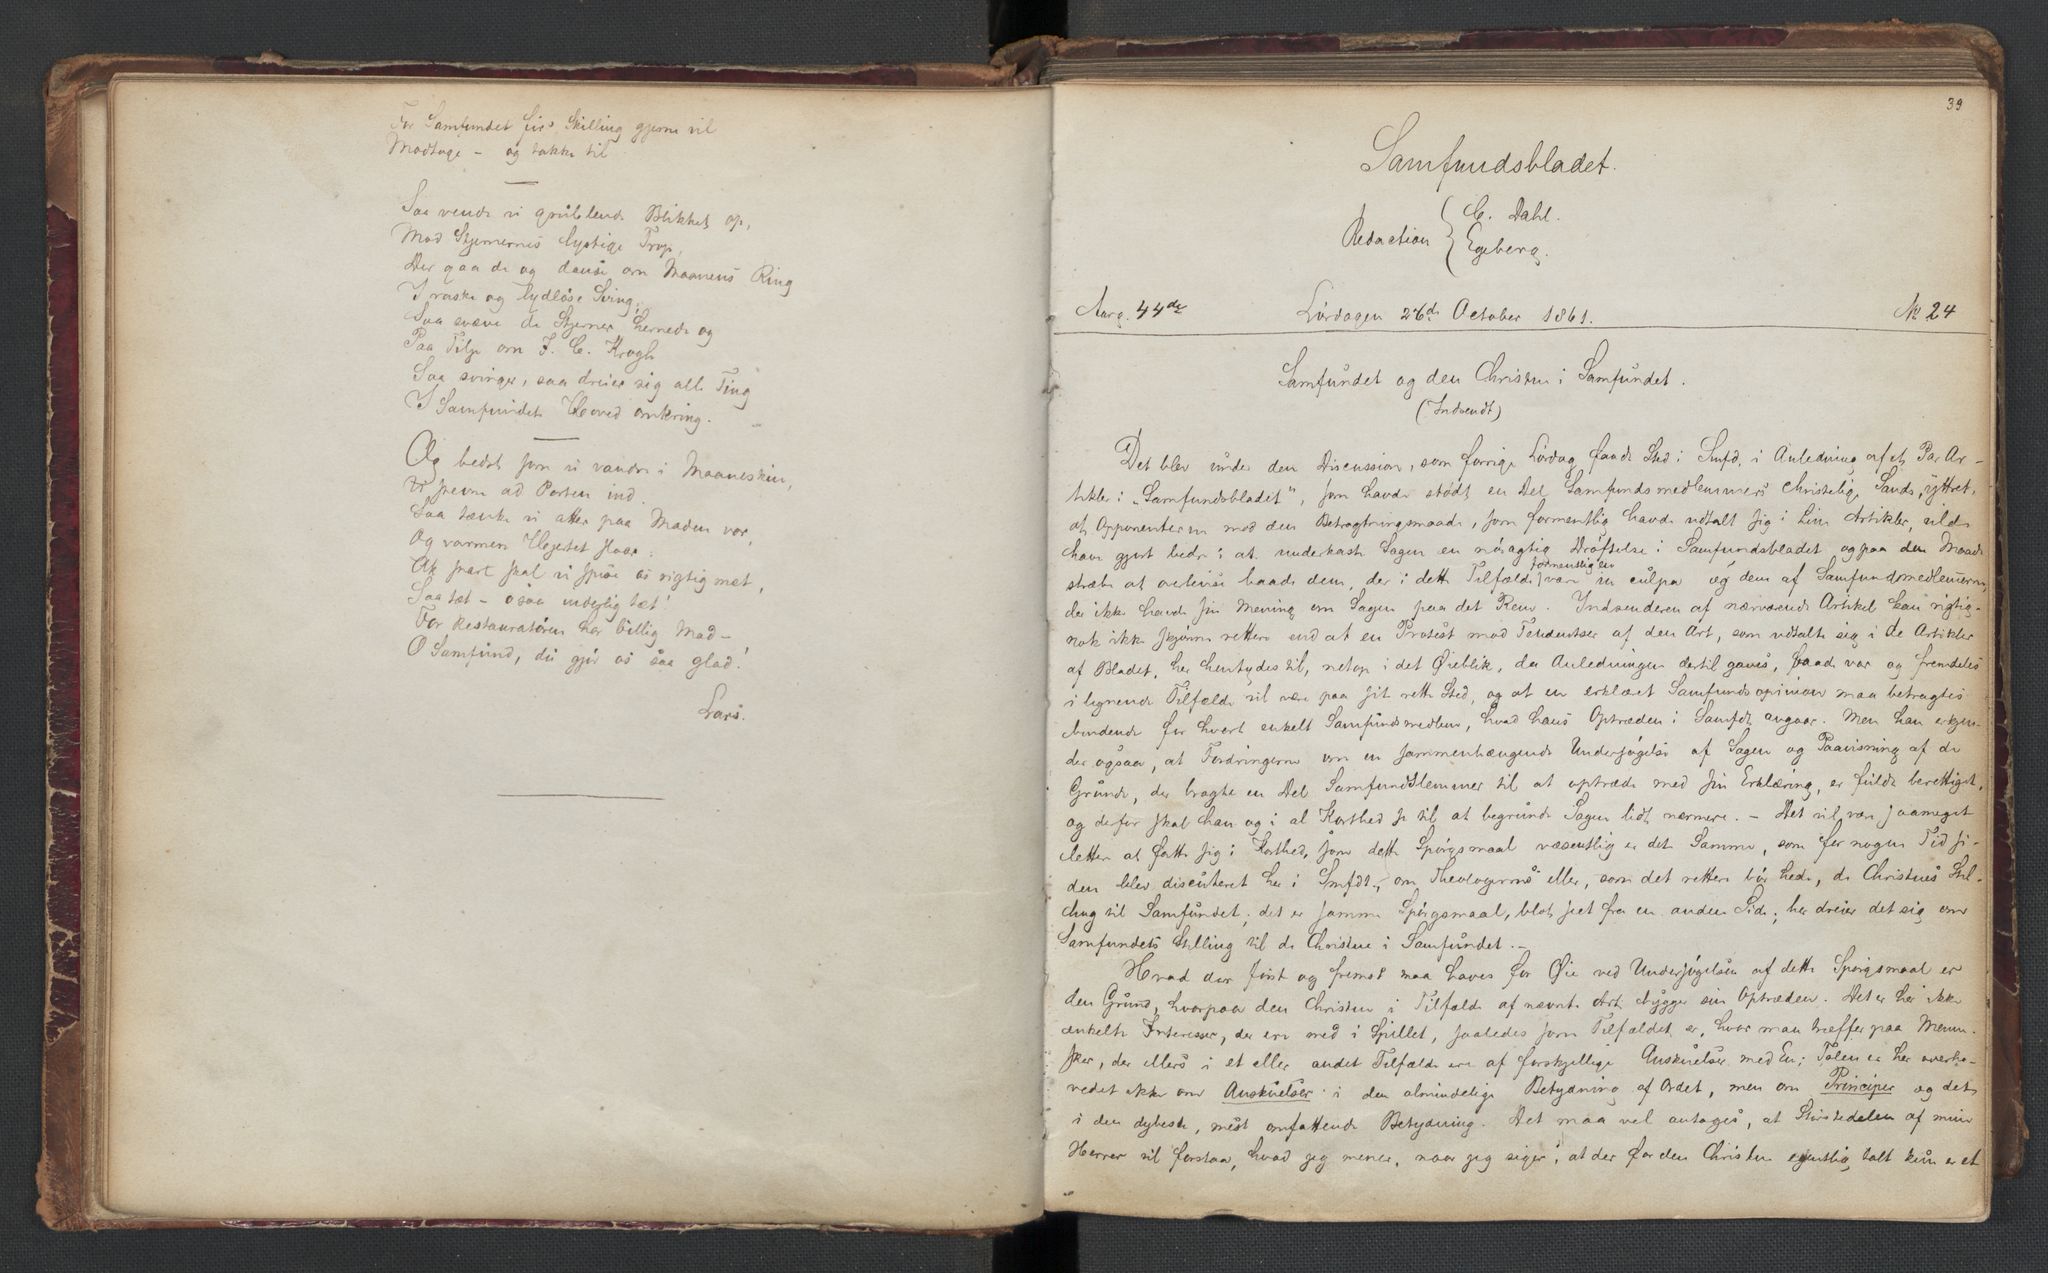 For Samfundet fire Skilling gjerne vil
Modtage – og takke til
Saa vende vi grublende Blikket op,
Mod Stjernernes lystige Trop,
Der gaa de og danse om Maanens Ring
I raske og lydløse Sving;
Saa svæve de Stjerner hernede og
Paa Tilje om F. C. Krogh
Saa svinger, saa dreier sig alle Ting
I Samfundets Hoved omkring.
Og bedst som vi vandre i Maaneskin,
Vi stevne ad Porten ind.
Saa tænke vi atter paa Maden vor,
Og varmen Hjertet slaar:
Ak snart skal vi spise os rigtig mæt,
Saa tæt – o saa inderlig tæt!
For Restauratøren har billig Mad –
O Samfund, du gjør os saa glad!
Lars.
39
Samfundsbladet.
Redaction { C. Dahl.
Egeberg.
Aarg. 44de Lørdagen 26de October 1861. No 24
Samfundet og den Christne i Samfundet.
(Indsendt)
Det blev under den Discussion, som forrige Lørdag fandt Sted i Smfd. i Anledning af et Par Ar-
tikler i "Samfundsbladet", som havde stødt en Del Samfundsmedlemmers christelige Sands, yttret,
at Opponenterne mod den Betragtningsmaade, som formentlig havde udtalt sig i hine Artikler, vilde
have gjort bedre i at underkaste Sagen en nøiagtig Drøftelse i Samfundsbladet og paa den Maade
stræbe at overbevise baade dem, der i dette Tilfælde formentligen var in culpa og dem af Samfundsmedlemmerne,
der ikke havde sin Mening om Sagen paa det Rene. Indsenderen af nærværende Artikel kan rigtig-
nok ikke skjønne rettere end at en Protest mod Tendentser af den Art, som udtalte sig i de Artikler
af Bladet, her hentydes til, netop i det Øieblik, da Anledningen dertil gaves, baade var og fremdeles
i lignende Tilfælde vil være paa sit rette Sted, og at en erklæret Samfundsopinion maa betragtes
bindende for hvert enkelt Samfundsmedlem, hvad hans Optræden i Samfdt angaar. Men han erkjen-
der ogsaa, at Fordringerne om en sammenhængende Undersøgelse af Sagen og Paavisning af de
Grunde, der bragte en Del Samfundslemmer til at optræde med sin Erklæring, er fuldt berettiget,
og derfor skal han og i al Korthed se til at begrunde Sagen lidt nærmere. – Det vil være saameget
lettere at fatte sig i Korthed, som dette Spørgsmaal væsentlig er det Samme, som for nogen Tid si-
den blev discuteret her i Smfdt., om Theologernes eller, som det rettere bør hede, de Christnes Stil-
ling til Samfundet; det er samme Spørgsmaal, blot seet fra en anden Side; her dreier det sig om
Samfundets Stilling til de Christne i Samfundet. –
Hvad der først og fremst maa haves for Øie ved Undersøgelsen af dette Spørgsmaal er
den Grund, hvorpaa den Christne i Tilfælde af nævnte Art bygger sin Optræden. Det er her ikke
enkelte Interesser, der ere med i Spillet, saaledes som Tilfældet er, hvor man træffer paa Menne-
sker, der ellers i et eller andet Tilfælde ere af forskjellige Anskuelser med En; Talen er her overho-
vedet ikke om Anskuelser i den almindelige Betydning af Ordet, men om Principer og det
i den dybeste, mest omfattende Betydning. Det maa vel antages, at Størstedelen af mine
Herrer vil forstaa, hvad jeg mener, naar jeg siger, at der for den Christne egentlig talt kun er et